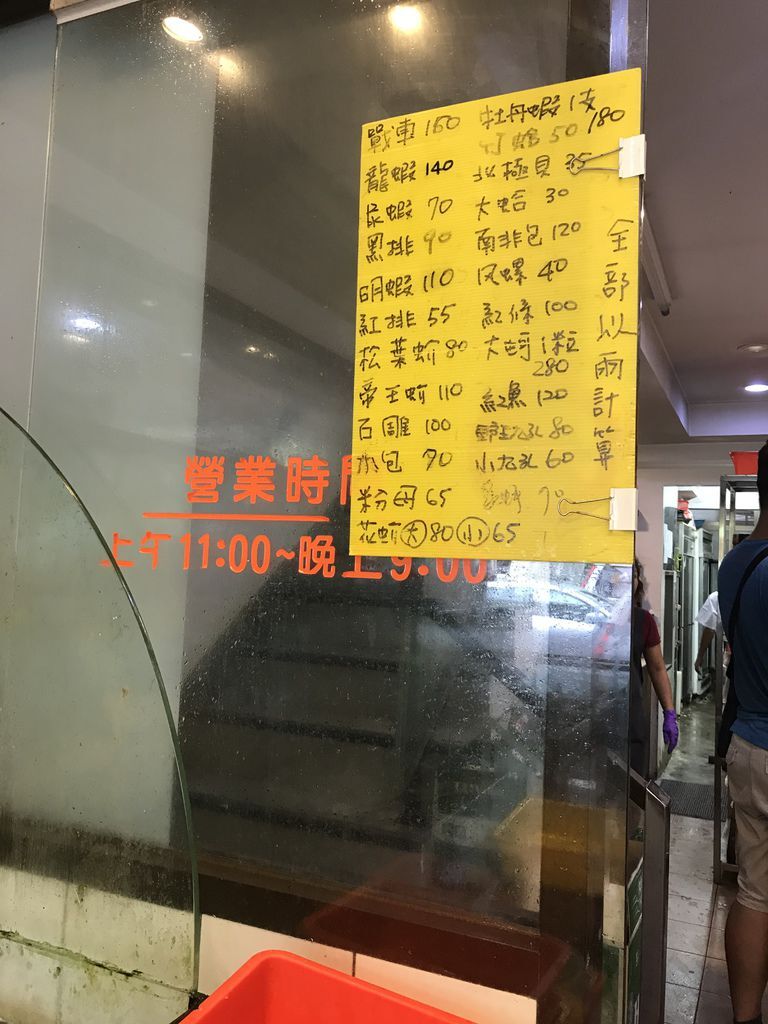 戰車 160
龍蝦 140
尾蝦 70
黑排 90
明蝦 110
紅排 55
松葉蚧 80
帝王蚧 110
石雕 100
水包 70
粉母 65
花蚧大80小65
牡丹蝦1支
180
竹蛤 50
北極貝 35
大蛤 30
南非包 120
风螺 40
紅條 100
大蚵1粒
280
紅魚 120
野生九孔 80
小九孔 60
70
全部以兩計算
營業時間
上午11:00~晚上9:00